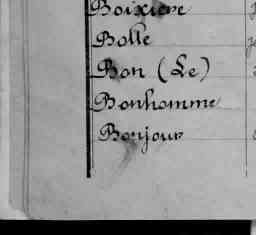 Boixiere
Bolle
Bon (Le)
Bonhomme
Bonjour